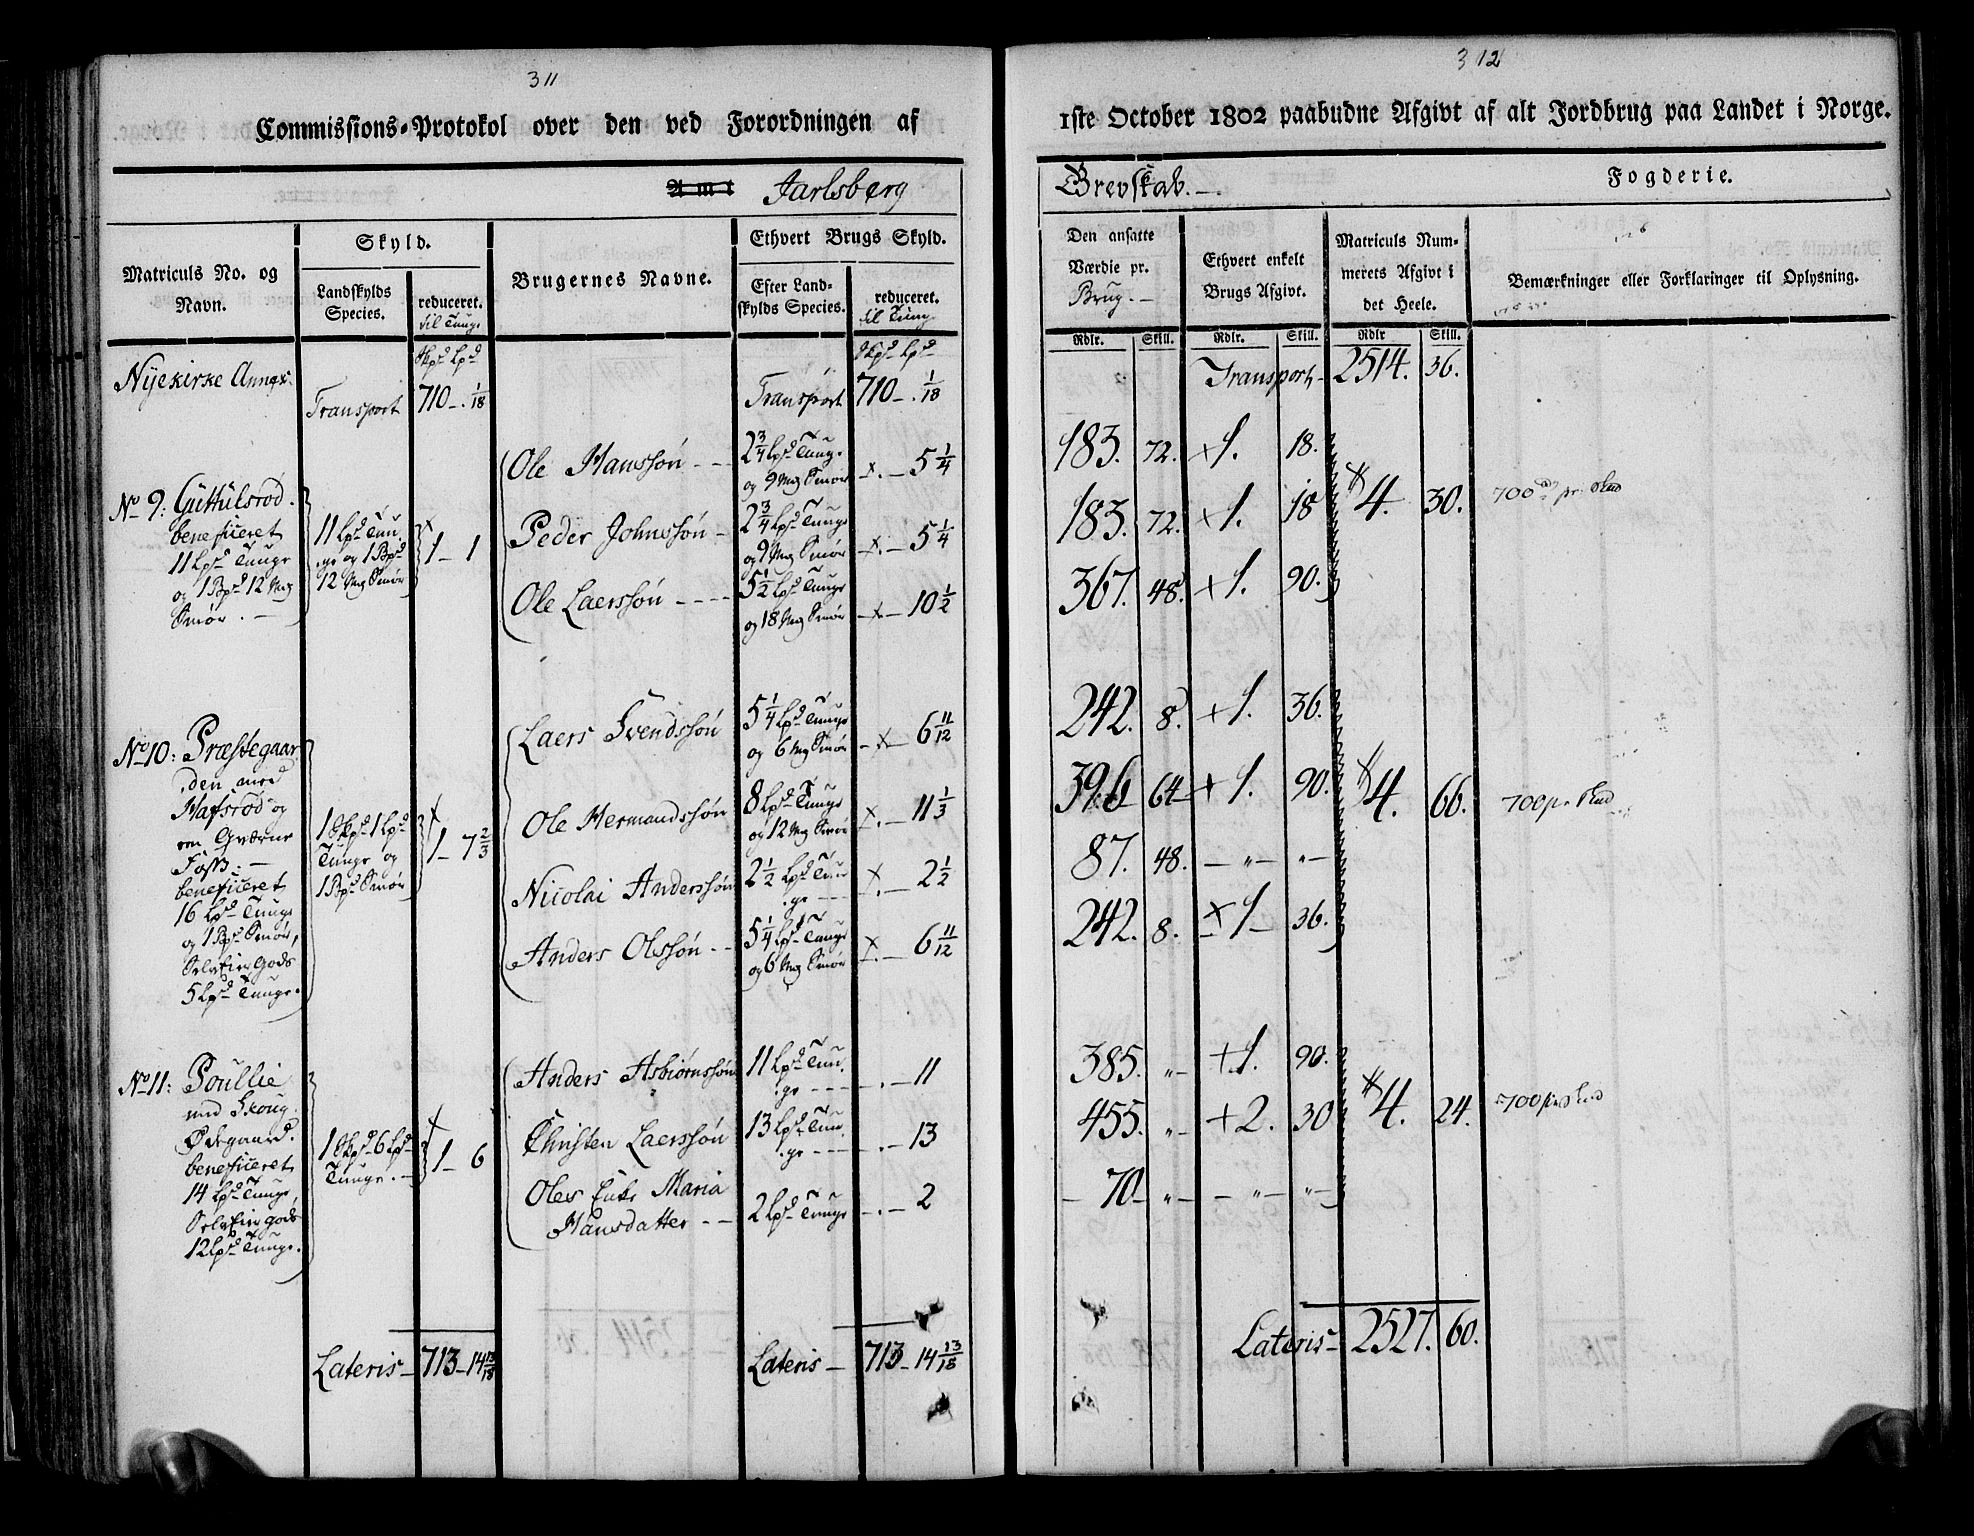 311
Commissions-Protokol over den ved Forordningen af
Amt Jarlsberg
Matriculs No. og Navn.
Skyld.
Landskylds Species.
reduceret. til Tunge
Brugernes Navne.
Ethvert Brugs Skyld.
Efter Landskylds Species.
reduceret. til Tung.
Nijekirke Annex.
Skpd Lpd
Skpd Lpd
Transport 710 - . 1/18
Transport 710 - . 1/18
No 9: Guttulsrød.
beneficeret
11 Lpd Tunge
og 1 Bpd 12 Mg
Smør. —
11 Lpd Tun-
ge og 1 Bpd
12 Mg Smør
1 - 1
Ole Hanssøn - - 2 3/4 Lpd Tunge
og 9 Mg Smør - 5 1/4
Peder Johnssøn - 2 3/4 Lpd Tunge
og 9 Mg Smør - 5 1/4
Ole Laerssøn - - - - 5 1/2 Lpd Tunge
og 18 Mg Smør - 10 1/2
No 10: Præstegaar-
den med
Hafsrød og
en Qværne
Foss. —
beneficeret
16 Lpd Tunge
og 1 Bpd Smør,
Selveier Gods
5 Lpd Tunge.
1 Skpd 1 Lpd
Tunge og
1 Bpd Smør
1 - 7 2/3
Laers Svendssøn 5 1/4 Lpd Tunge
og 6 Mg Smør - 6 11/12
Ole Hermandssøn 8 Lpd Tunge
og 12 Mg Smør - 11 1/3
Nicolai Anderssøn 2 1/2 Lpd Tun-
ge - - - 2 1/2
Anders Olssøn - - 5 1/4 Lpd Tunge
og 6 Mg Smør - 6 11/12
No 11: Poullie
med Skoug
Ødegaard.
beneficeret
14 Lpd Tunge,
Selveier gods
12 Lpd Tunge.
1 Skpd 6 Lpd
Tunge. —
1 - 6
Anders Asbiørnssøn 11 Lpd Tun-
ge - - - - . - 11
Christen Laerssøn 13 Lpd Tun-
ge - - - - . - 13
Oles Enke Maria
Hansdatter - - 2 Lpd Tunge - . - 2
Lateris - 713 - 14 13/18
Lateris - 713 - 14 13/18
312
1ste October 1802 paabudne Afgivt af alt Jordbrug paa Landet i Norge.
Grevskab. — Fogderie.
Den ansatte Værdie pr. Brug. —
Ethvert enkelt Brugs Afgivt.
Matriculs Nummerets Afgivt i det Heele.
Bemærkninger eller Forklaringer til Oplysning.
Rdlr. Skill. Rdlr. Skill. Rdlr Skill.
Transport - 2514. 36.
183. 72. 1. 18.
183. 72. 1. 18 4. 30. 700
367. 48. 1. 90.
242. 8. 1. 36.
396 64 1. 90. 4. 66. 700
87. 48. - " - " -
242. 8. 1 - 36.
385. " - 1. 90.
455. " - 2. 30 4. 24. 700
- 70 - " - - " - " -
Lateris - 2527. 60.